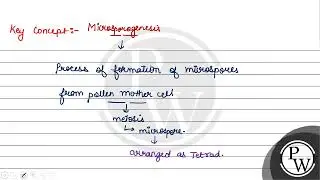 Key Concept:- Microsporogenesis
Process of formation of microspores
from pollen mother cells
meiosis
microspore.
arranged as Tetrad.
PW
PW